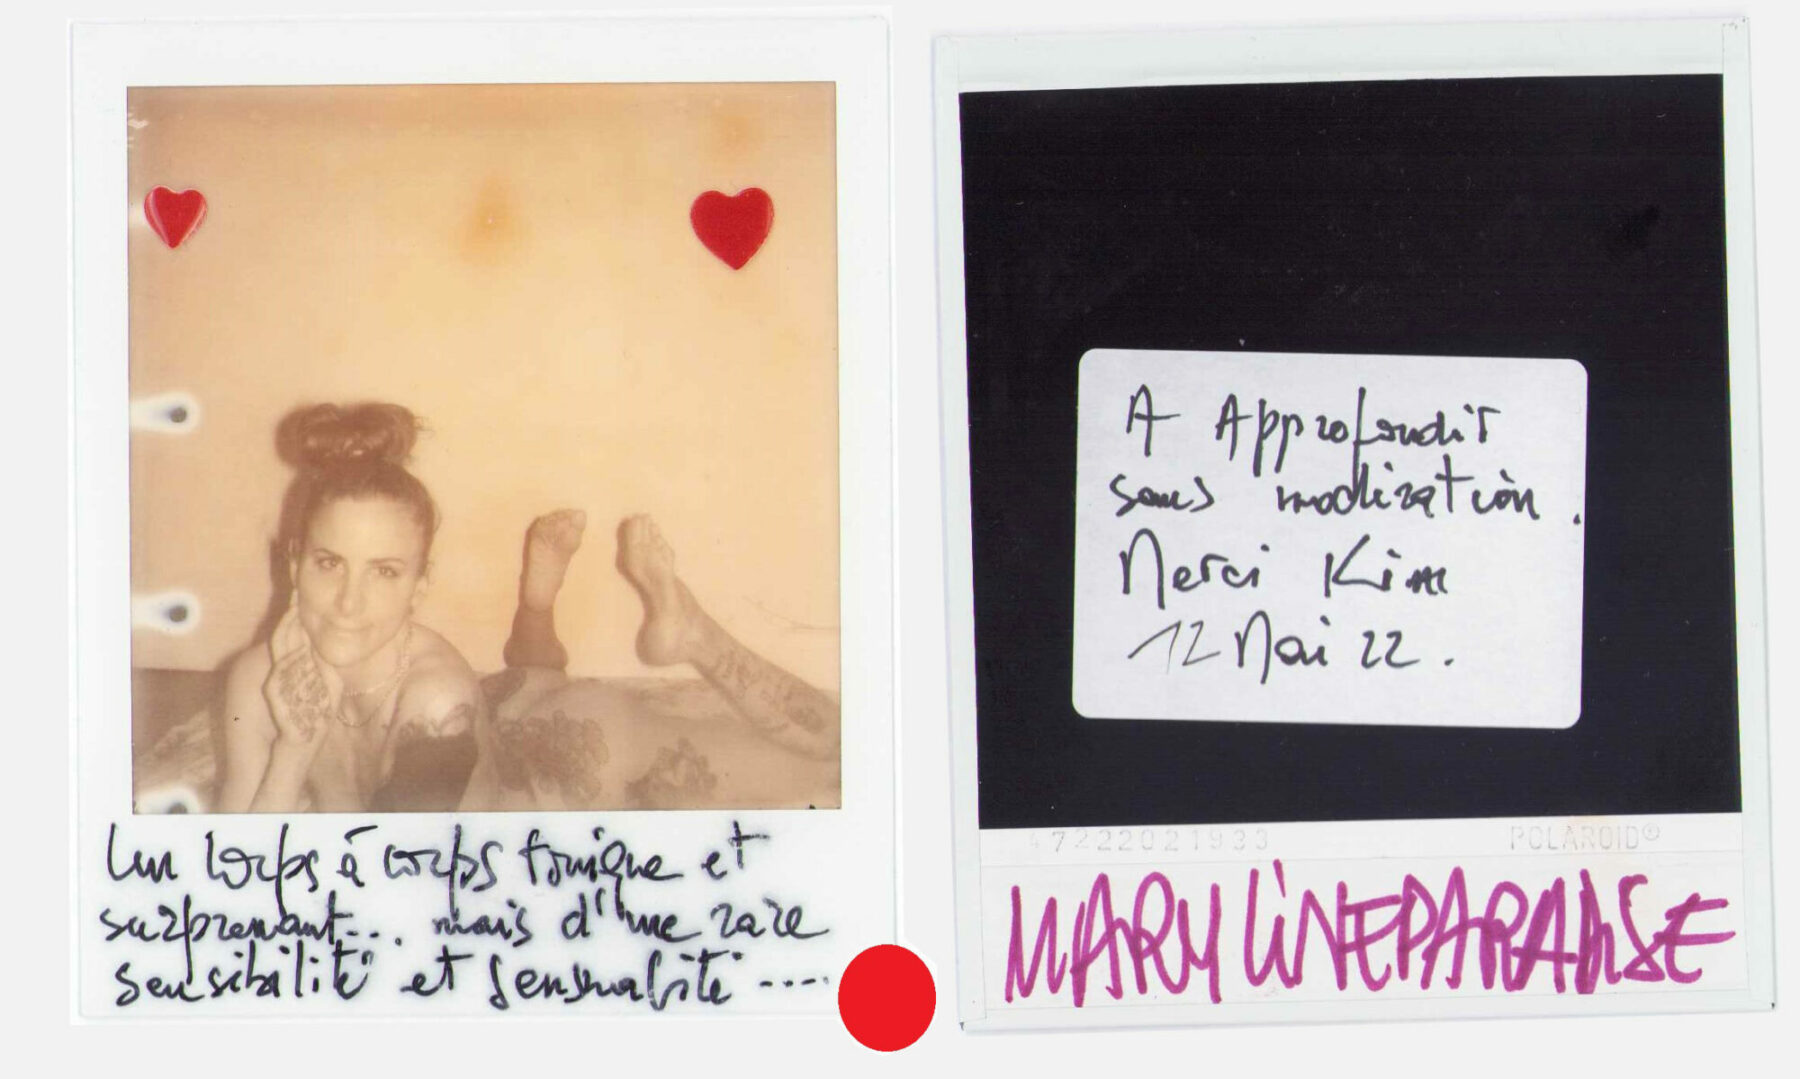 Un Corps à corps tonique et
surprenant... mais d'une rare
sensibilité et sensualité ....
A Approfondir
sans modération.
Merci Kim
12 Mai 22.
47222021933
POLAROID©
MARY LiNEPARADiSE